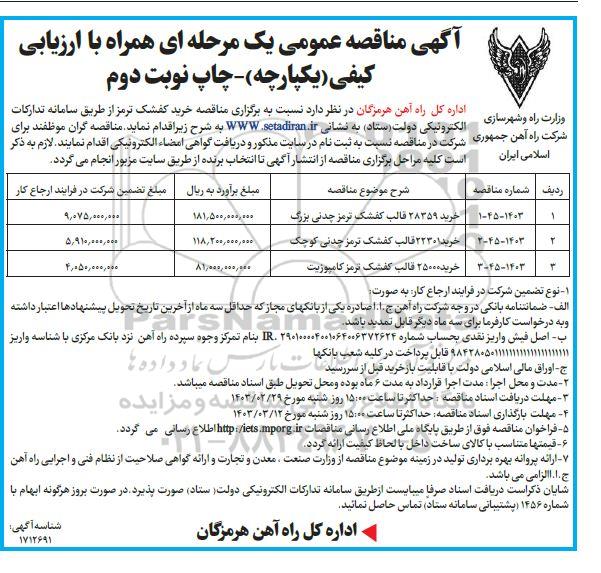 آگهی مناقصه عمومی یک مرحله ای همراه با ارزیابی
کیفی(یکپارچه)-چاپ نوبت دوم
وزارت راه وشهرسازی
شرکت راه آهن جمهوری
اسلامی ایران
اداره کل راه آهن هرمزگان در نظر دارد نسبت به برگزاری مناقصه خرید کفشک ترمز از طریق سامانه تدارکات
الکترونیکی دولت(ستاد) به نشانی www.setadiran.ir به شرح زیراقدام نماید.مناقصه گران موظفند برای
شرکت در مناقصه نسبت به ثبت نام در سایت مذکور و دریافت گواهی امضاء الکترونیکی اقدام نمایند. لازم به ذکر
است کلیه مراحل برگزاری مناقصه از انتشار آگهی تا انتخاب برنده از طریق سایت مزبور انجام می گردد.
ردیف شماره مناقصه شرح موضوع مناقصه مبلغ برآورد به ریال مبلغ تضمین شرکت در فرایند ارجاع کار
۱ ۱۴۰۳-۴۵-۱ خرید ۲۸۳۵۹ قالب کفشک ترمز چدنی بزرگ ۱۸۱,۵۰۰,۰۰۰,۰۰۰ ۹,۰۷۵,۰۰۰,۰۰۰
۲ ۱۴۰۳-۴۵-۲ خرید۲۲۳۰۱قالب کفشک ترمز چدنی کوچک ۱۱۸,۲۰۰,۰۰۰,۰۰۰ ۵,۹۱۰,۰۰۰,۰۰۰
۳ ۱۴۰۳-۴۵-۳ خرید۲۵۰۰۰ قالب کفشک ترمز کامپوزیت ۸۱,۰۰۰,۰۰۰,۰۰۰ ۴,۰۵۰,۰۰۰,۰۰۰
۱-نوع تضمین شرکت در فرایند ارجاع کار: به صورت:
الف- ضمانتنامه بانکی در وجه شرکت راه آهن ج.ا.ا صادره یکی از بانکهای مجاز که حداقل سه ماه از آخرین تاریخ تحویل پیشنهادها اعتبار داشته
وبه درخواست کارفرما برای سه ماه دیگر قابل تمدید باشد.
ب- اصل فیش واریز نقدی بحساب شماره IR. ۲۹۰۱۰۰۰۰۴۰۰۱۰۶۴۰۰۶۳۷۲۶۲۴ بنام تمرکز وجوه سپرده راه آهن نزد بانک مرکزی با شناسه واریز
قابل پرداخت در کلیه شعب بانکها
ج-اوراق مالی اسلامی دولت با قابلیت بازخرید قبل از سررسید
۲-مدت و محل اجرا : مدت اجرا قرارداد به مدت ۶ ماه بوده ومحل تحویل طبق اسناد مناقصه میباشد.
۳-مهلت دریافت اسناد مناقصه : حداکثرتا ساعت ۱۵:۰۰ روز شنبه مورخ ۱۴۰۳/۰۲/۲۹
۴- مهلت بارگذاری اسناد مناقصه: حداکثرتا ساعت ۱۵:۰۰ روز شنبه مورخ ۱۴۰۳/۰۳/۱۲
۵-فراخوان مناقصه فوق از طریق پایگاه ملی اطلاع رسانی مناقصات http:/iets.mporg.ir اطلاع رسانی می گردد.
۶-قیمتها متناسب با کالای ساخت داخل با لحاظ کیفیت ارائه گردد.
۷-ارائه پروانه بهره برداری تولید در زمینه موضوع مناقصه از وزارت صنعت ، معدن و تجارت و ارائه گواهی صلاحیت از نظام فنی و اجرایی راه آهن
ج.ا.االزامی می باشد.
شایان ذکراست دریافت اسناد صرفا میبایست ازطریق سامانه تدارکات الکترونیکی دولت( ستاد) صورت پذیرد.در صورت بروز هرگونه ابهام با
شماره ۱۴۵۶ (پشتیبانی سامانه ستاد) تماس حاصل نمائید.
اداره کل راه آهن هرمزگان
شناسه آگهی:
۱۷۱۲۶۹۱